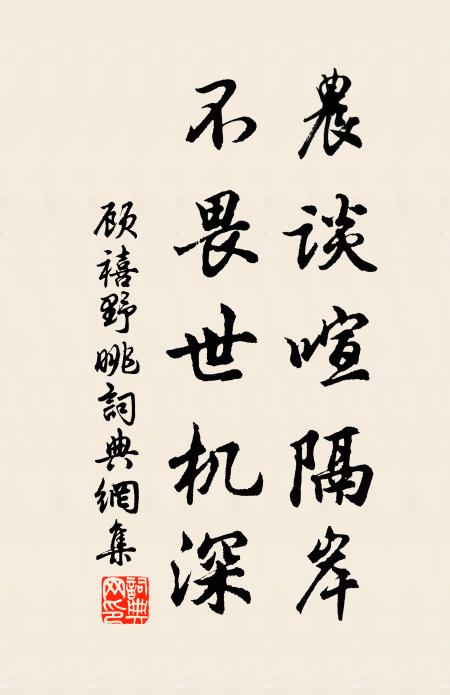 農谈喧隔岸
不畏世机深
顾禧野眺詞典網集
詞典网印